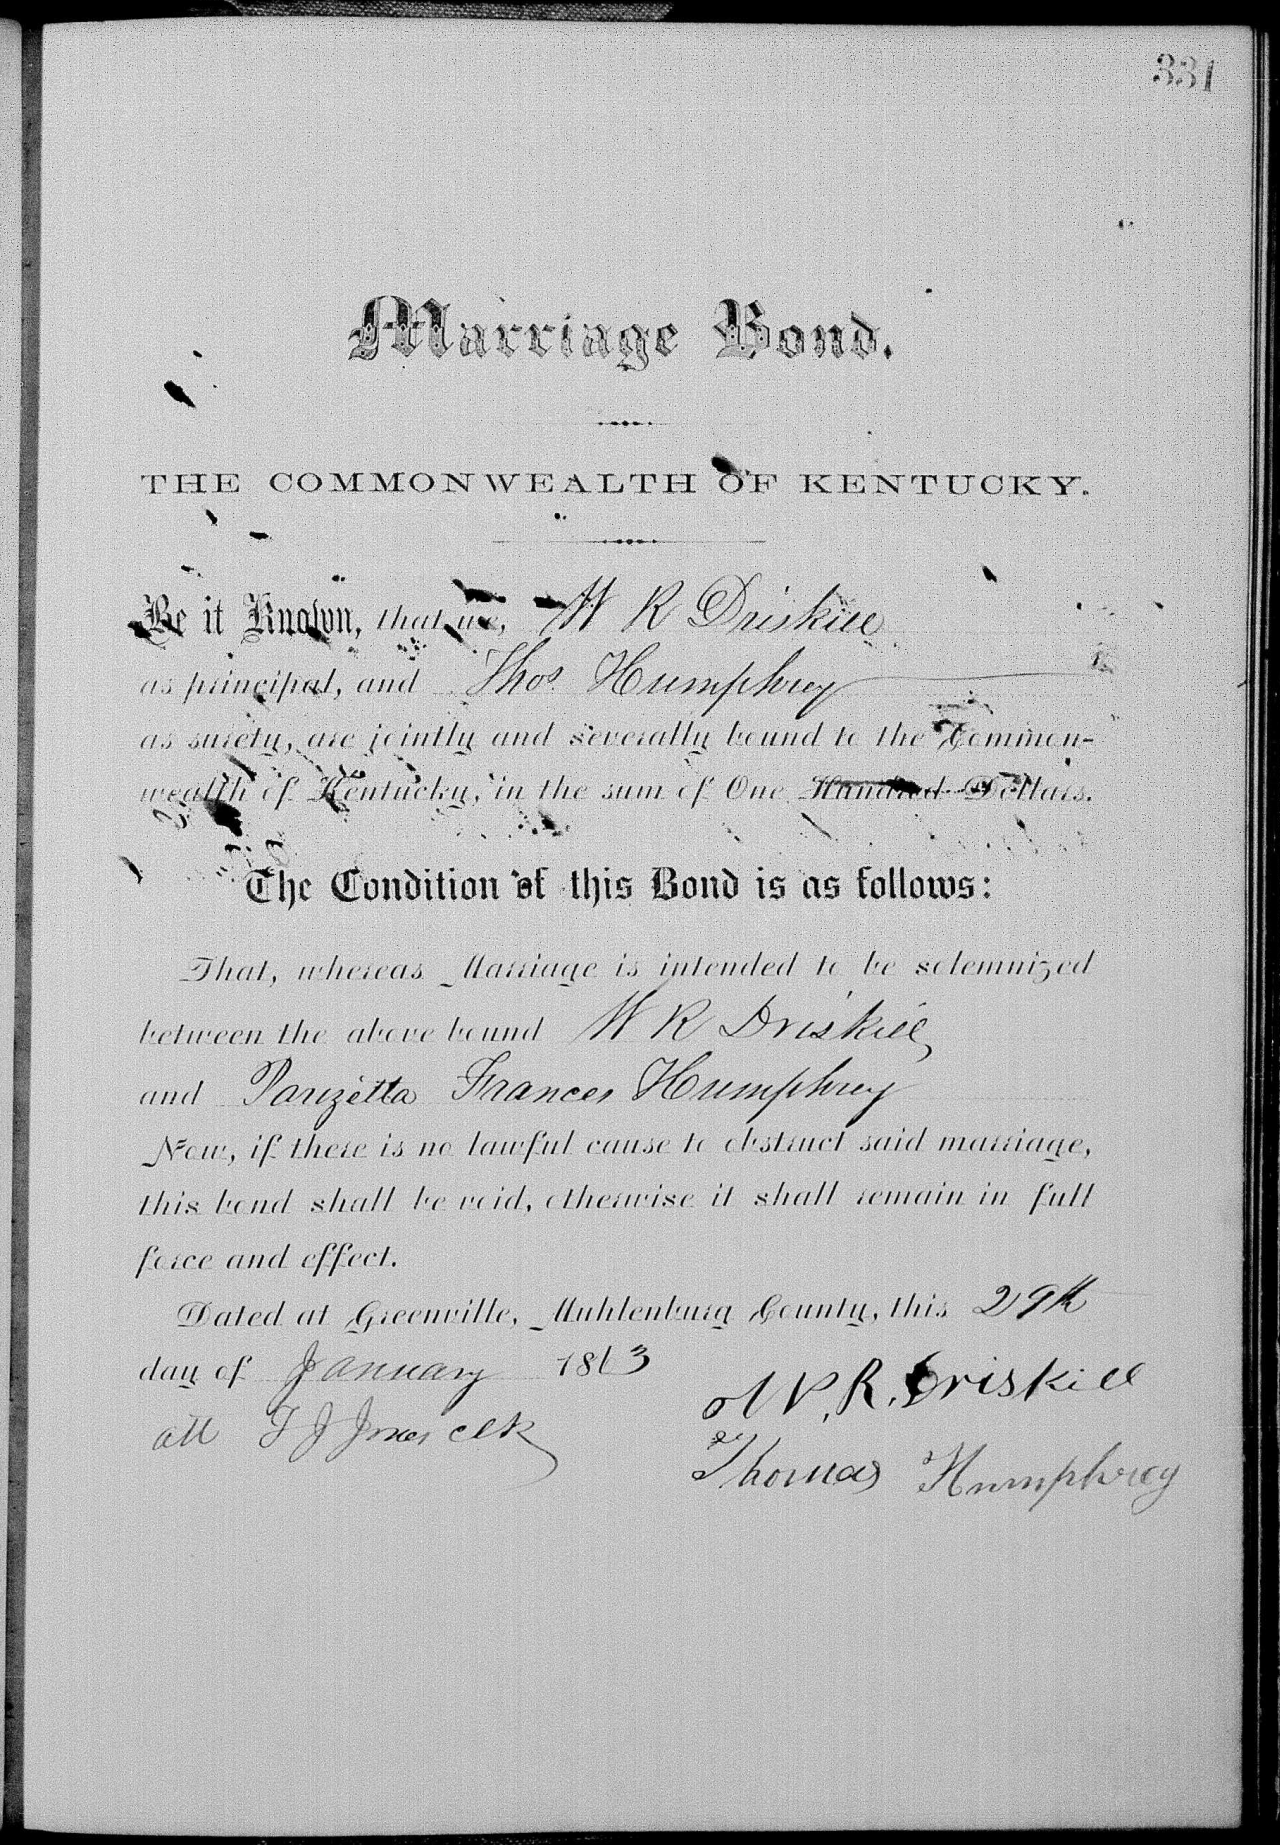 331
Marriage Bond.
THE COMMONWEALTH OF KENTUCKY.
Be it Known, that we, W R Driskill
as principal, and Thos. Humphrey
as surety, are jointly and severally bound to the Common-
wealth of Kentucky, in the sum of One Hundred Dollars.
The Condition of this Bond is as follows:
That, whereas Marriage is intended to be solemnized
between the above bound W R Driskill
and Parizetta Frances Humphrey
Now, if there is no lawful cause to obstruct said marriage,
this bond shall be void, otherwise it shall remain in full
force and effect.
Dated at Greenville, Muhlenburg County, this 29th
day of January 1863
W. R. Driskill
att T J Jones clk
Thomas Humphrey